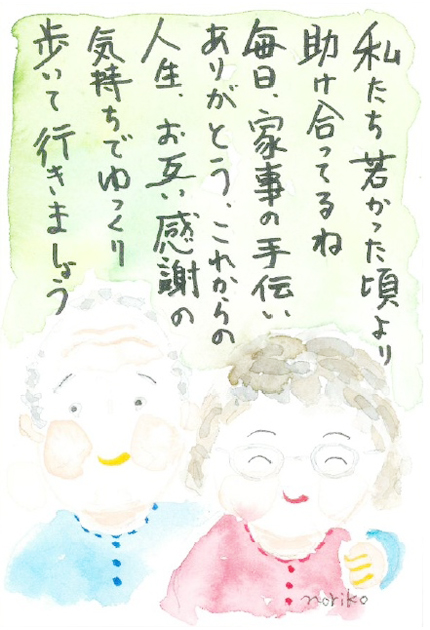 私たち若かった頃より
助け合ってるね
毎日、家事の手伝い
ありがとう、これからの
人生、お互い感謝の
気持ちでゆっくり
歩いて行きましょう
noriko